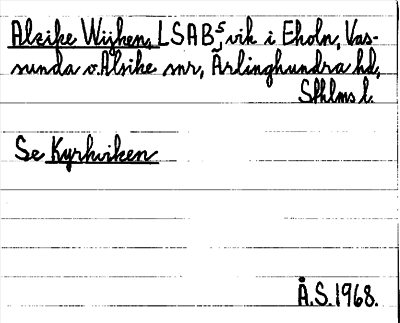 Alsike Wijken, LSAB⁵, vik i Eholn, Vas-
sunda o. Alsike snr, Ärlinghundra hd,
Sthlms l.
Se Kyrkviken
Å.S. 1968.